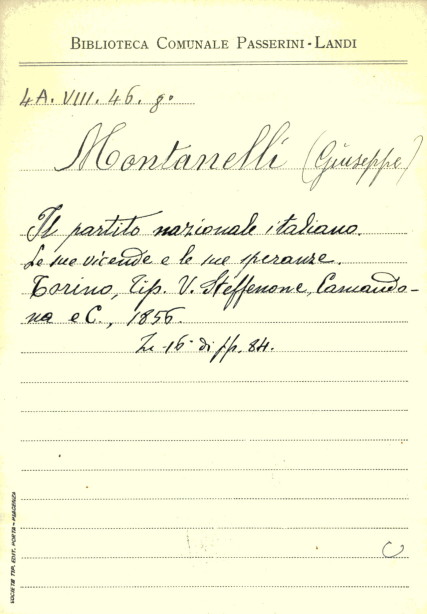 BIBLIOTECA COMUNALE PASSERINI-LANDI
4A. VIII. 46. 9º
Montanelli (Giuseppe)
Il partito nazionale italiano.
Le sue vicende e le sue speranze.
Torino, Tip. V. Steffenone, Camando-
na e C., 1856.
In-16º di pp. 84.
SOCIETÀ TIP. EDIT. PORTA - PIACENZA